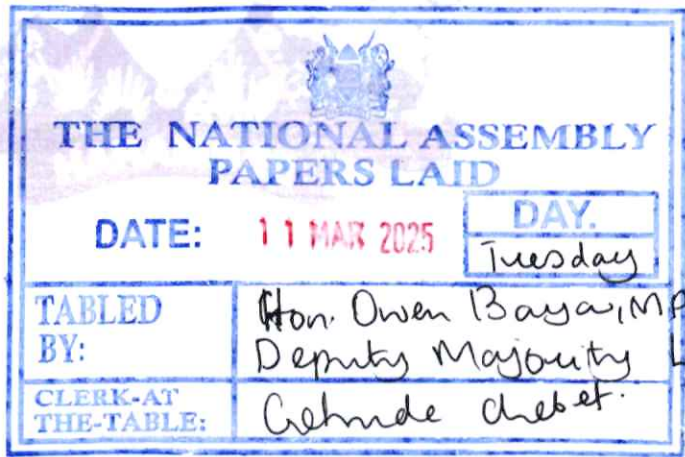 THE NATIONAL ASSEMBLY
PAPERS LAID
DATE: 11 MAR 2025
DAY.
Tuesday
TABLED BY:
Hon. Owen Baya, MP
Deputy Majority L
CLERK-AT THE-TABLE:
Getrude Chebet.